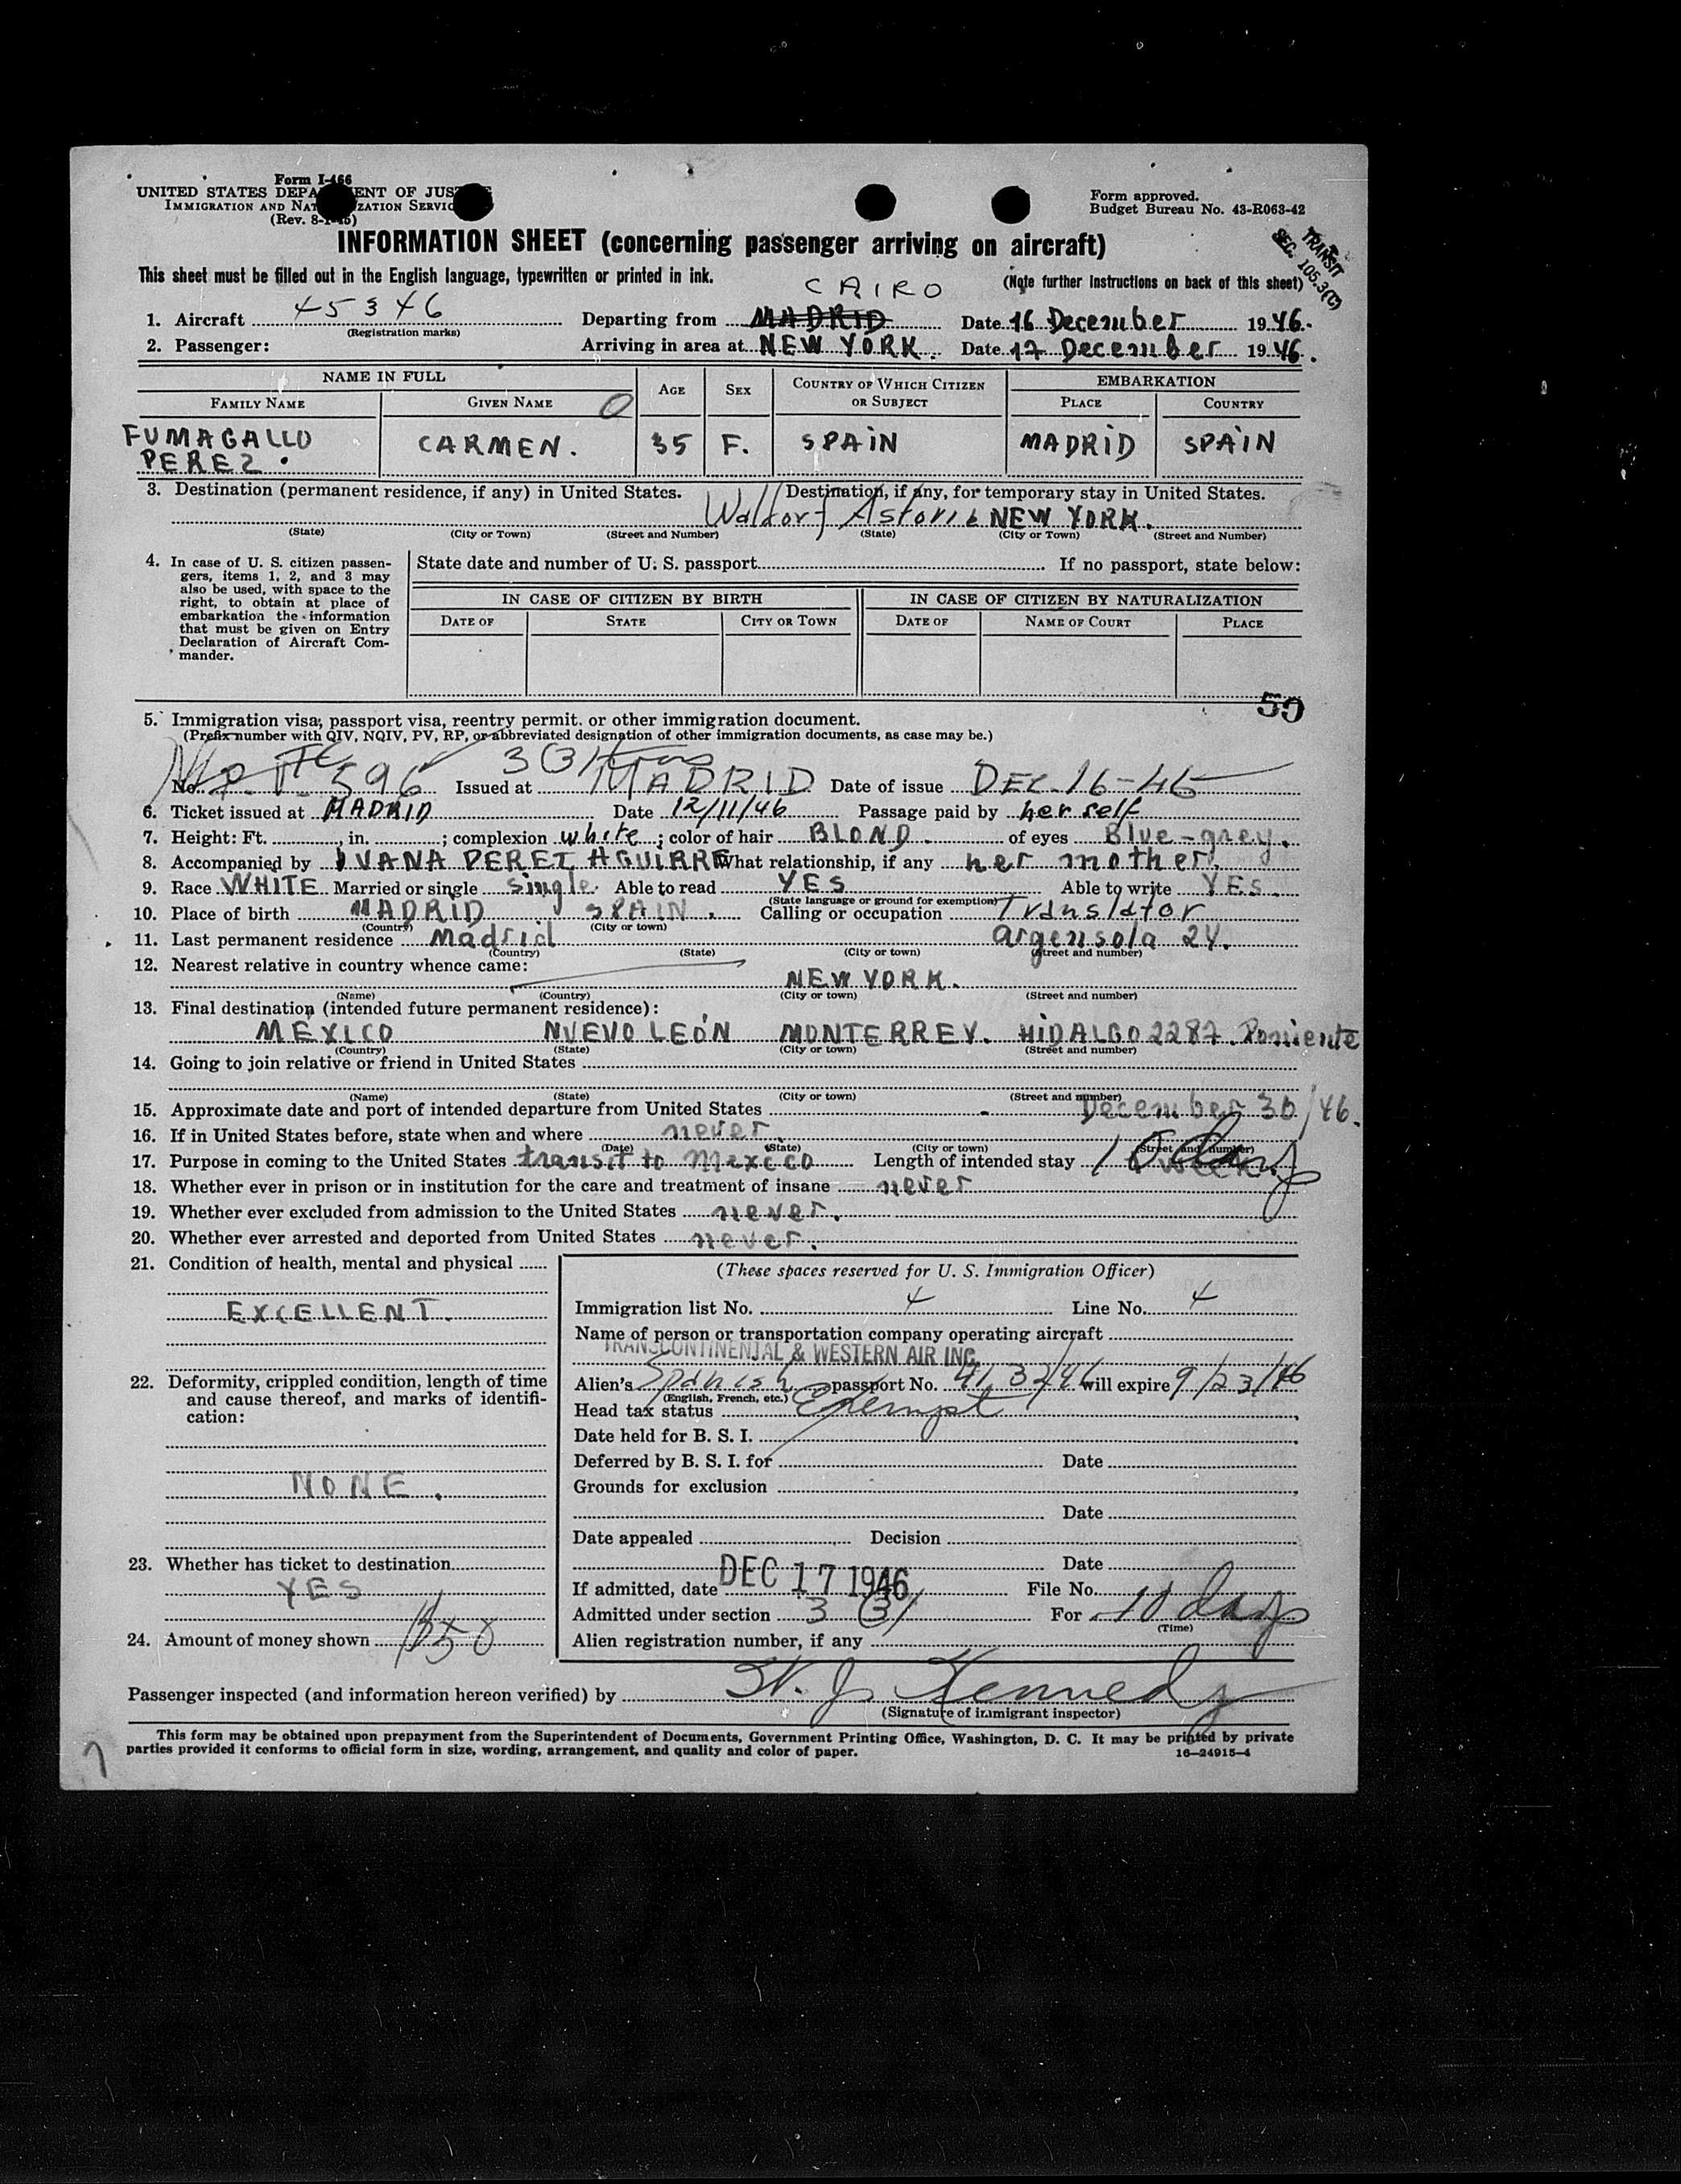 Form I-466
UNITED STATES DEPARTMENT OF JUSTICE
IMMIGRATION AND NATURALIZATION SERVICE
(Rev. 8-1-45)
Form approved.
Budget Bureau No. 43-R063-42
INFORMATION SHEET (concerning passenger arriving on aircraft)
TRANSIT
SEC. 105.3(C)
This sheet must be filled out in the English language, typewritten or printed in ink.
(Note further instructions on back of this sheet)
CAIRO
1. Aircraft 45346 Departing from MADRID Date 16 December 1946.
(Registration marks)
2. Passenger: Arriving in area at NEW YORK. Date 17 December 1946.
NAME IN FULL AGE SEX COUNTRY OF WHICH CITIZEN OR SUBJECT EMBARKATION
FAMILY NAME GIVEN NAME PLACE COUNTRY
FUMAGALLO PEREZ. CARMEN. 35 F. SPAIN MADRID SPAIN
3. Destination (permanent residence, if any) in United States. Destination, if any, for temporary stay in United States.
Waldorf Astoria NEW YORK.
(State) (City or Town) (Street and Number) (State) (City or Town) (Street and Number)
4. In case of U. S. citizen passengers, items 1, 2, and 3 may also be used, with space to the right, to obtain at place of embarkation the information that must be given on Entry Declaration of Aircraft Commander.
State date and number of U. S. passport If no passport, state below:
IN CASE OF CITIZEN BY BIRTH IN CASE OF CITIZEN BY NATURALIZATION
DATE OF STATE CITY OR TOWN DATE OF NAME OF COURT PLACE
50
5. Immigration visa, passport visa, reentry permit, or other immigration document.
(Prefix number with QIV, NQIV, PV, RP, or abbreviated designation of other immigration documents, as case may be.)
3(3)
No. 596 Issued at MADRID Date of issue DEC. 16-46
6. Ticket issued at MADRID Date 12/11/46 Passage paid by her self
7. Height: Ft. , in. ; complexion white ; color of hair BLOND. of eyes Blue-grey.
8. Accompanied by JVANA PEREZ AGUIRRE What relationship, if any her mother.
9. Race WHITE Married or single single. Able to read YES Able to write YES.
(State language or ground for exemption)
10. Place of birth MADRID SPAIN. Calling or occupation Translator
(Country) (City or town)
11. Last permanent residence Madrid argensola 24.
(Country) (State) (City or town) (Street and number)
12. Nearest relative in country whence came:
NEW YORK.
(Name) (Country) (City or town) (Street and number)
13. Final destination (intended future permanent residence):
MEXICO NUEVO LEÓN MONTERREY. HIDALGO 2287. Poniente
(Country) (State) (City or town) (Street and number)
14. Going to join relative or friend in United States
(Name) (State) (City or town) (Street and number)
15. Approximate date and port of intended departure from United States December 30/46.
16. If in United States before, state when and where never
(Date) (State) (City or town) (Street and number)
17. Purpose in coming to the United States transit to Mexico Length of intended stay 10 days
18. Whether ever in prison or in institution for the care and treatment of insane never
19. Whether ever excluded from admission to the United States never.
20. Whether ever arrested and deported from United States never.
21. Condition of health, mental and physical
EXCELLENT.
22. Deformity, crippled condition, length of time and cause thereof, and marks of identification:
NONE.
23. Whether has ticket to destination
YES
24. Amount of money shown
(These spaces reserved for U. S. Immigration Officer)
Immigration list No. 4 Line No. 4
Name of person or transportation company operating aircraft
TRANSCONTINENTAL & WESTERN AIR INC.
Alien's Spanish passport No. will expire 9/23/
(English, French, etc.)
Head tax status Exempt
Date held for B. S. I.
Deferred by B. S. I. for Date
Grounds for exclusion
Date
Date appealed Decision
Date
If admitted, date DEC 17 1946 File No.
Admitted under section 3 (3) For 10 days
(Time)
Alien registration number, if any
Passenger inspected (and information hereon verified) by W. J. Kennedy
(Signature of immigrant inspector)
This form may be obtained upon prepayment from the Superintendent of Documents, Government Printing Office, Washington, D. C. It may be printed by private
parties provided it conforms to official form in size, wording, arrangement, and quality and color of paper.
16—24915-4